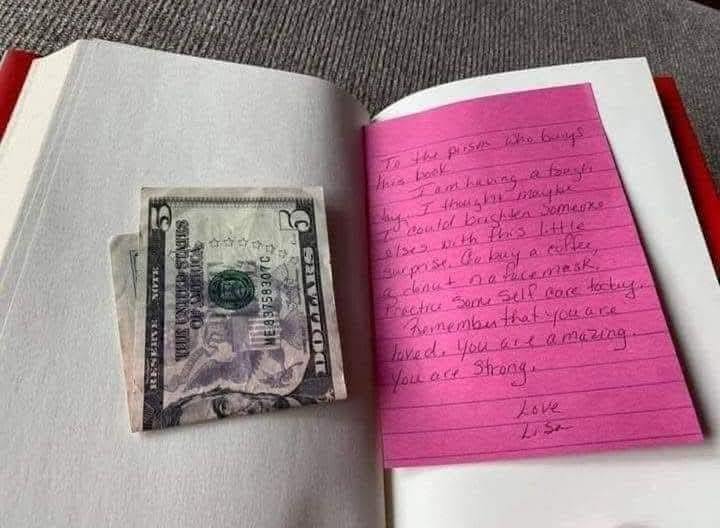 RESERVE NOTE
5
THE UNITED STATES
OF AMERICA
ME83758307C
5
DOLLARS
To the person who buys
this book
I am having a tough
day. I thought maybe
I could brighten someone
elses with this little
surprise. Go buy a coffee,
a donut or a face mask.
Practice some self care today.
Remember that you are
loved. You are amazing.
You are strong.
Love
Lisa